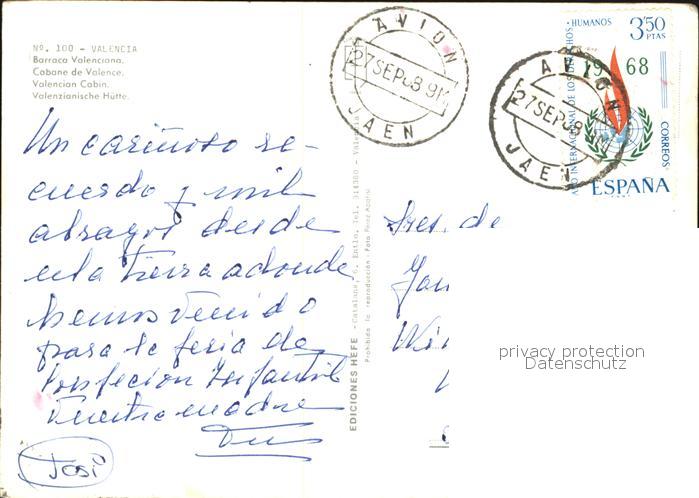 Nº. 100 - VALENCIA
Barraca Valenciana.
Cabane de Valence.
Valencian Cabin.
Valenzianische Hütte.
AVION
27 SEP 68 9M
JAEN
AVION
27 SEP 68 9M
JAEN
AÑO INTERNACIONAL DE LOS DERECHOS HUMANOS
3'50
PTAS
1968
CORREOS
ESPAÑA
Un cariñoso re-
cuerdo y mil
abrazos desde
esta tierra adonde
hemos venido
para la feria de
Confección Infantil
Vuestra madre
José
EDICIONES HEFE - Catalana, 6, Entlo, Tel. 314300 - Valencia
Prohibida la reproducción - Foto Pérez Aparisi
Sres. de
privacy protection
Datenschutz